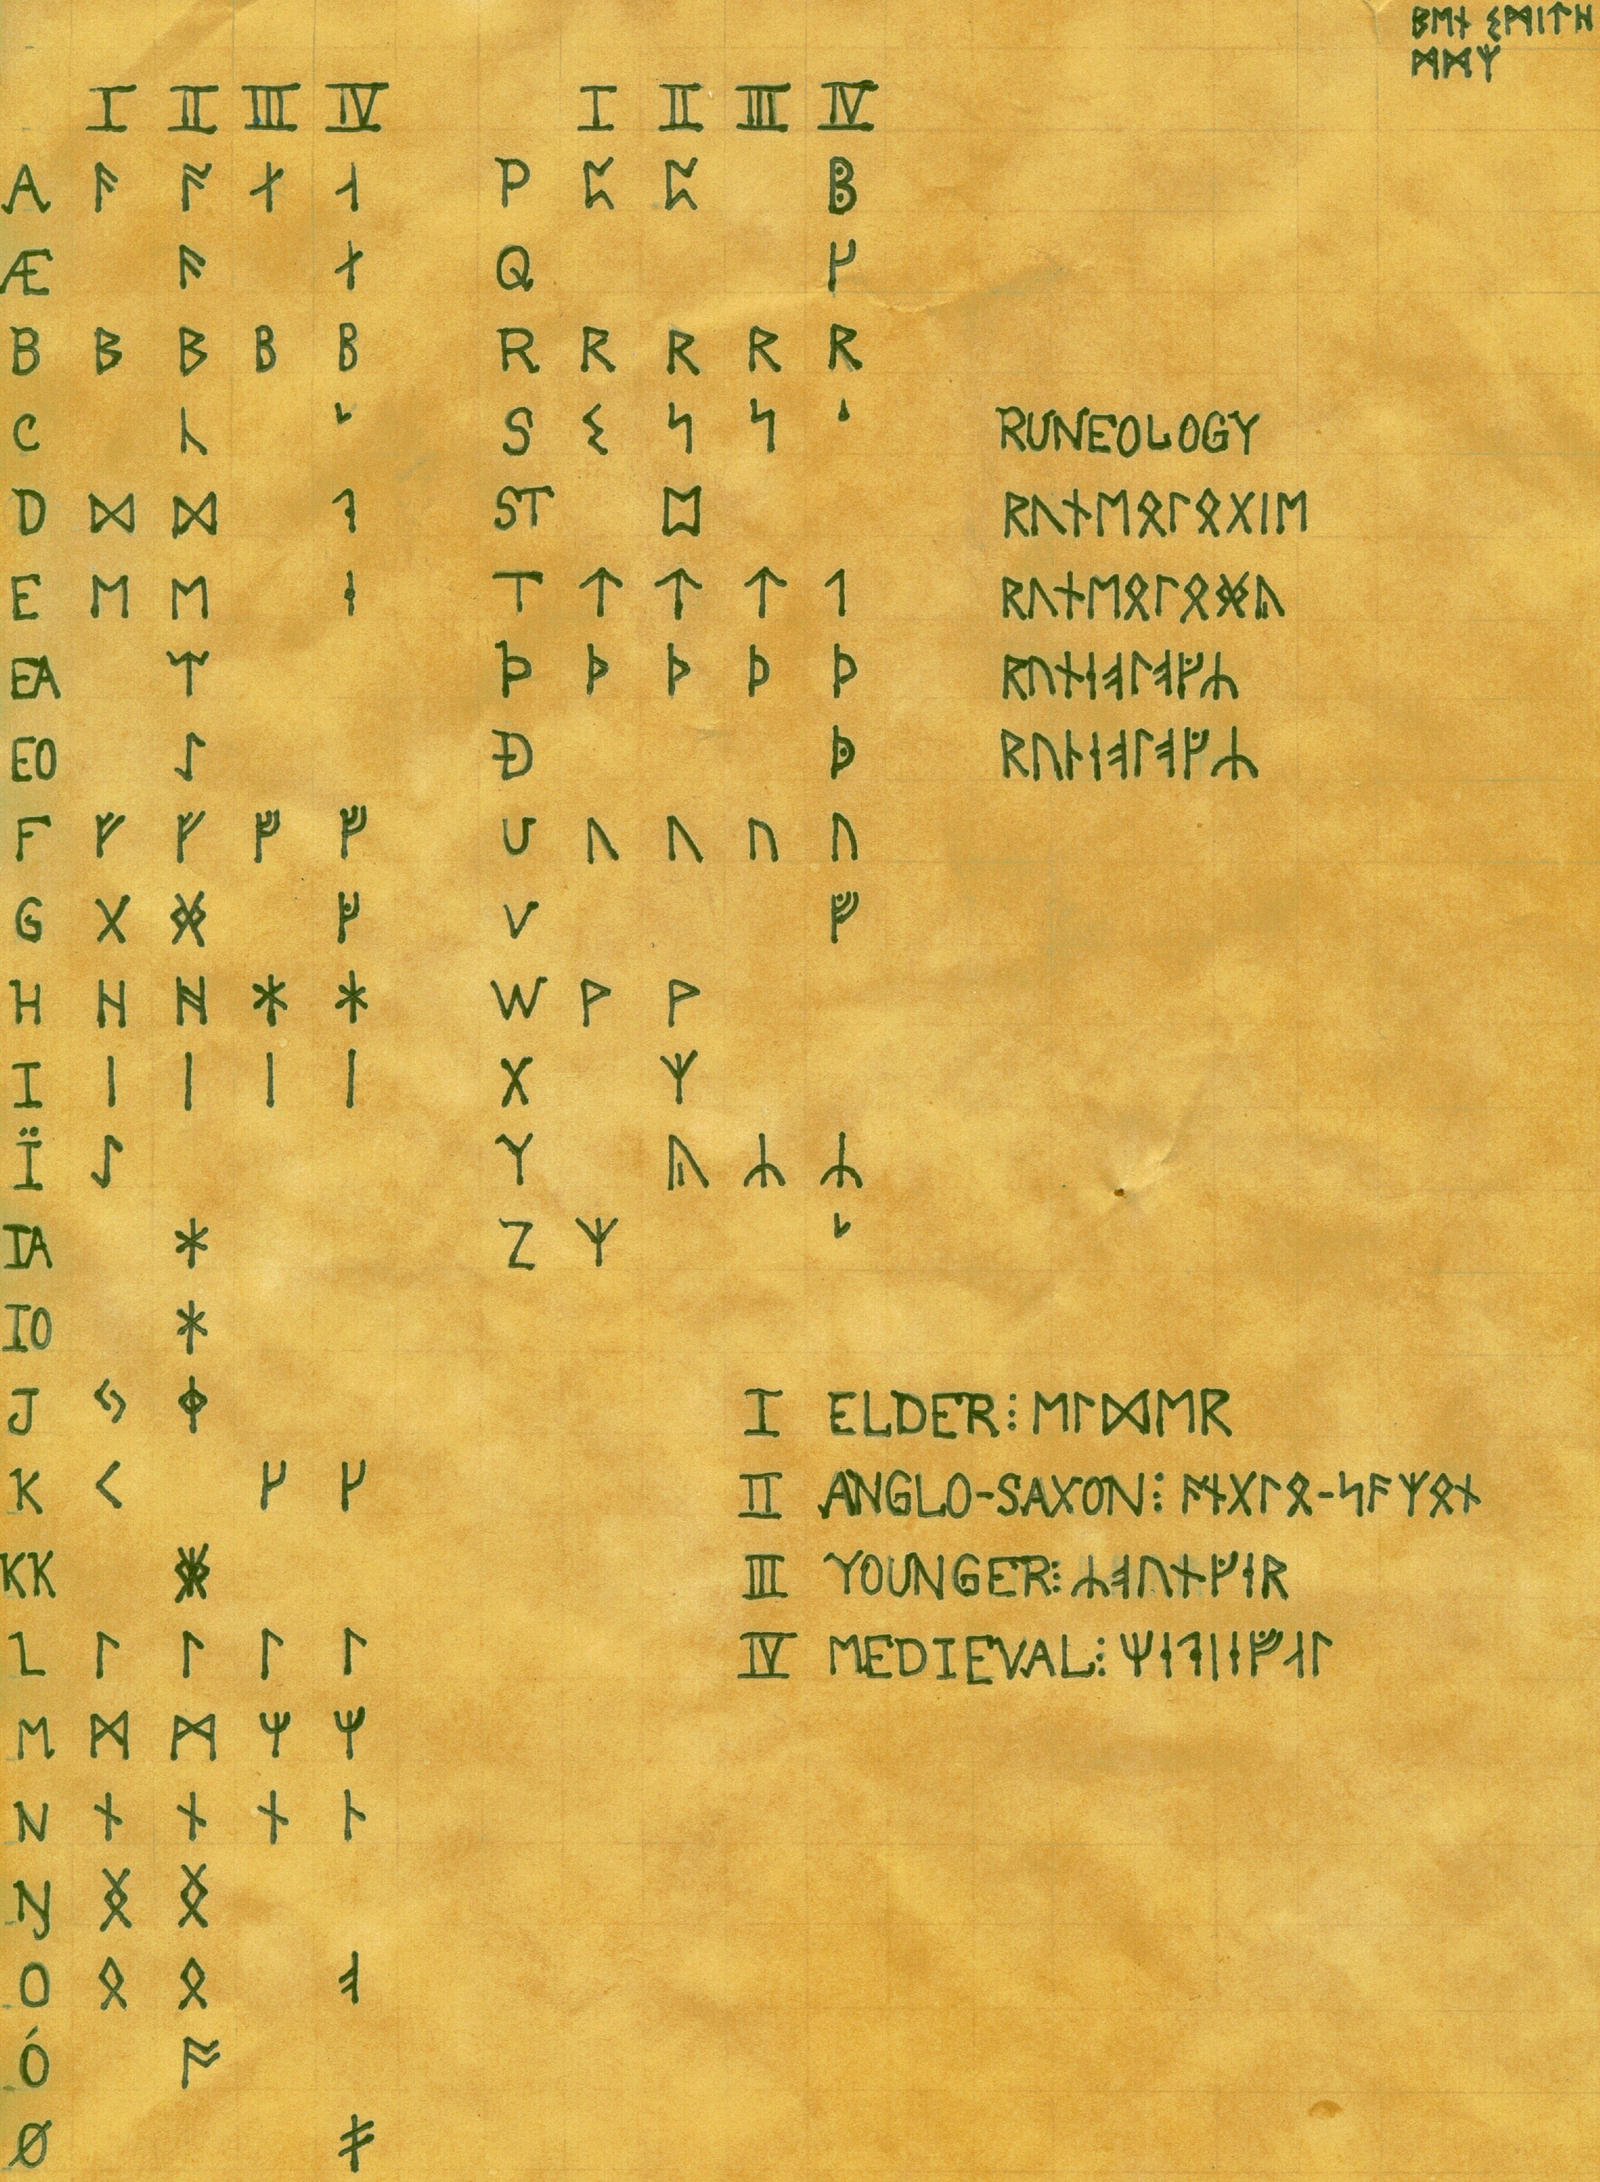 ᛒᛖᚾ ᛊᛗᛁᛏᚺ
ᛗᛗᛉ
I II III IV
A ᚨ ᚪ ᚬ ᛆ
Æ ᚫ ᛅ
B ᛒ ᛒ ᛒ ᛒ
C ᚳ ᛍ
D ᛞ ᛞ ᛑ
E ᛖ ᛖ ᛂ
EA ᛠ
EO ᛇ
F ᚠ ᚠ ᚠ ᚠ
G ᚷ ᚸ ᚵ
H ᚺ ᚻ ᚼ ᚼ
I ᛁ ᛁ ᛁ ᛁ
Ï ᛇ
IA ᛡ
IO ᛡ
J ᛃ ᛄ
K ᚲ ᚴ ᚴ
KK ᛤ
L ᛚ ᛚ ᛚ ᛚ
M ᛗ ᛗ ᛘ ᛘ
N ᚾ ᚾ ᚾ ᚿ
Ŋ ᛝ ᛝ
O ᛟ ᛟ ᚮ
Ó ᚩ
Ø ᚯ
I II III IV
P ᛈ ᛈ ᛔ
Q ᚴ
R ᚱ ᚱ ᚱ ᚱ
S ᛊ ᛋ ᛋ ᛌ
ST ᛥ
T ᛏ ᛏ ᛏ ᛐ
Þ ᚦ ᚦ ᚦ ᚦ
Ð ᚧ
U ᚢ ᚢ ᚢ ᚢ
V ᚡ
W ᚹ ᚹ
X ᛉ
Y ᚣ ᛦ ᛦ
Z ᛉ ᛎ
RUNEOLOGY
ᚱᚢᚾᛖᛟᛚᛟᚷᛁᛖ
ᚱᚢᚾᛖᛟᛚᛟᚸᚣ
ᚱᚢᚾᛂᚮᛚᚮᚵᛦ
ᚱᚢᚿᛂᚮᛚᚮᚵᛦ
I ELDER⁝ ᛖᛚᛞᛖᚱ
II ANGLO-SAXON⁝ ᚪᚾᚷᛚᛟ-ᛋᚫᛉᛟᚾ
III YOUNGER⁝ ᛦᚮᚢᚾᚵᛂᚱ
IV MEDIEVAL⁝ ᛘᛂᛑᛁᛂᚡᛆᛚ